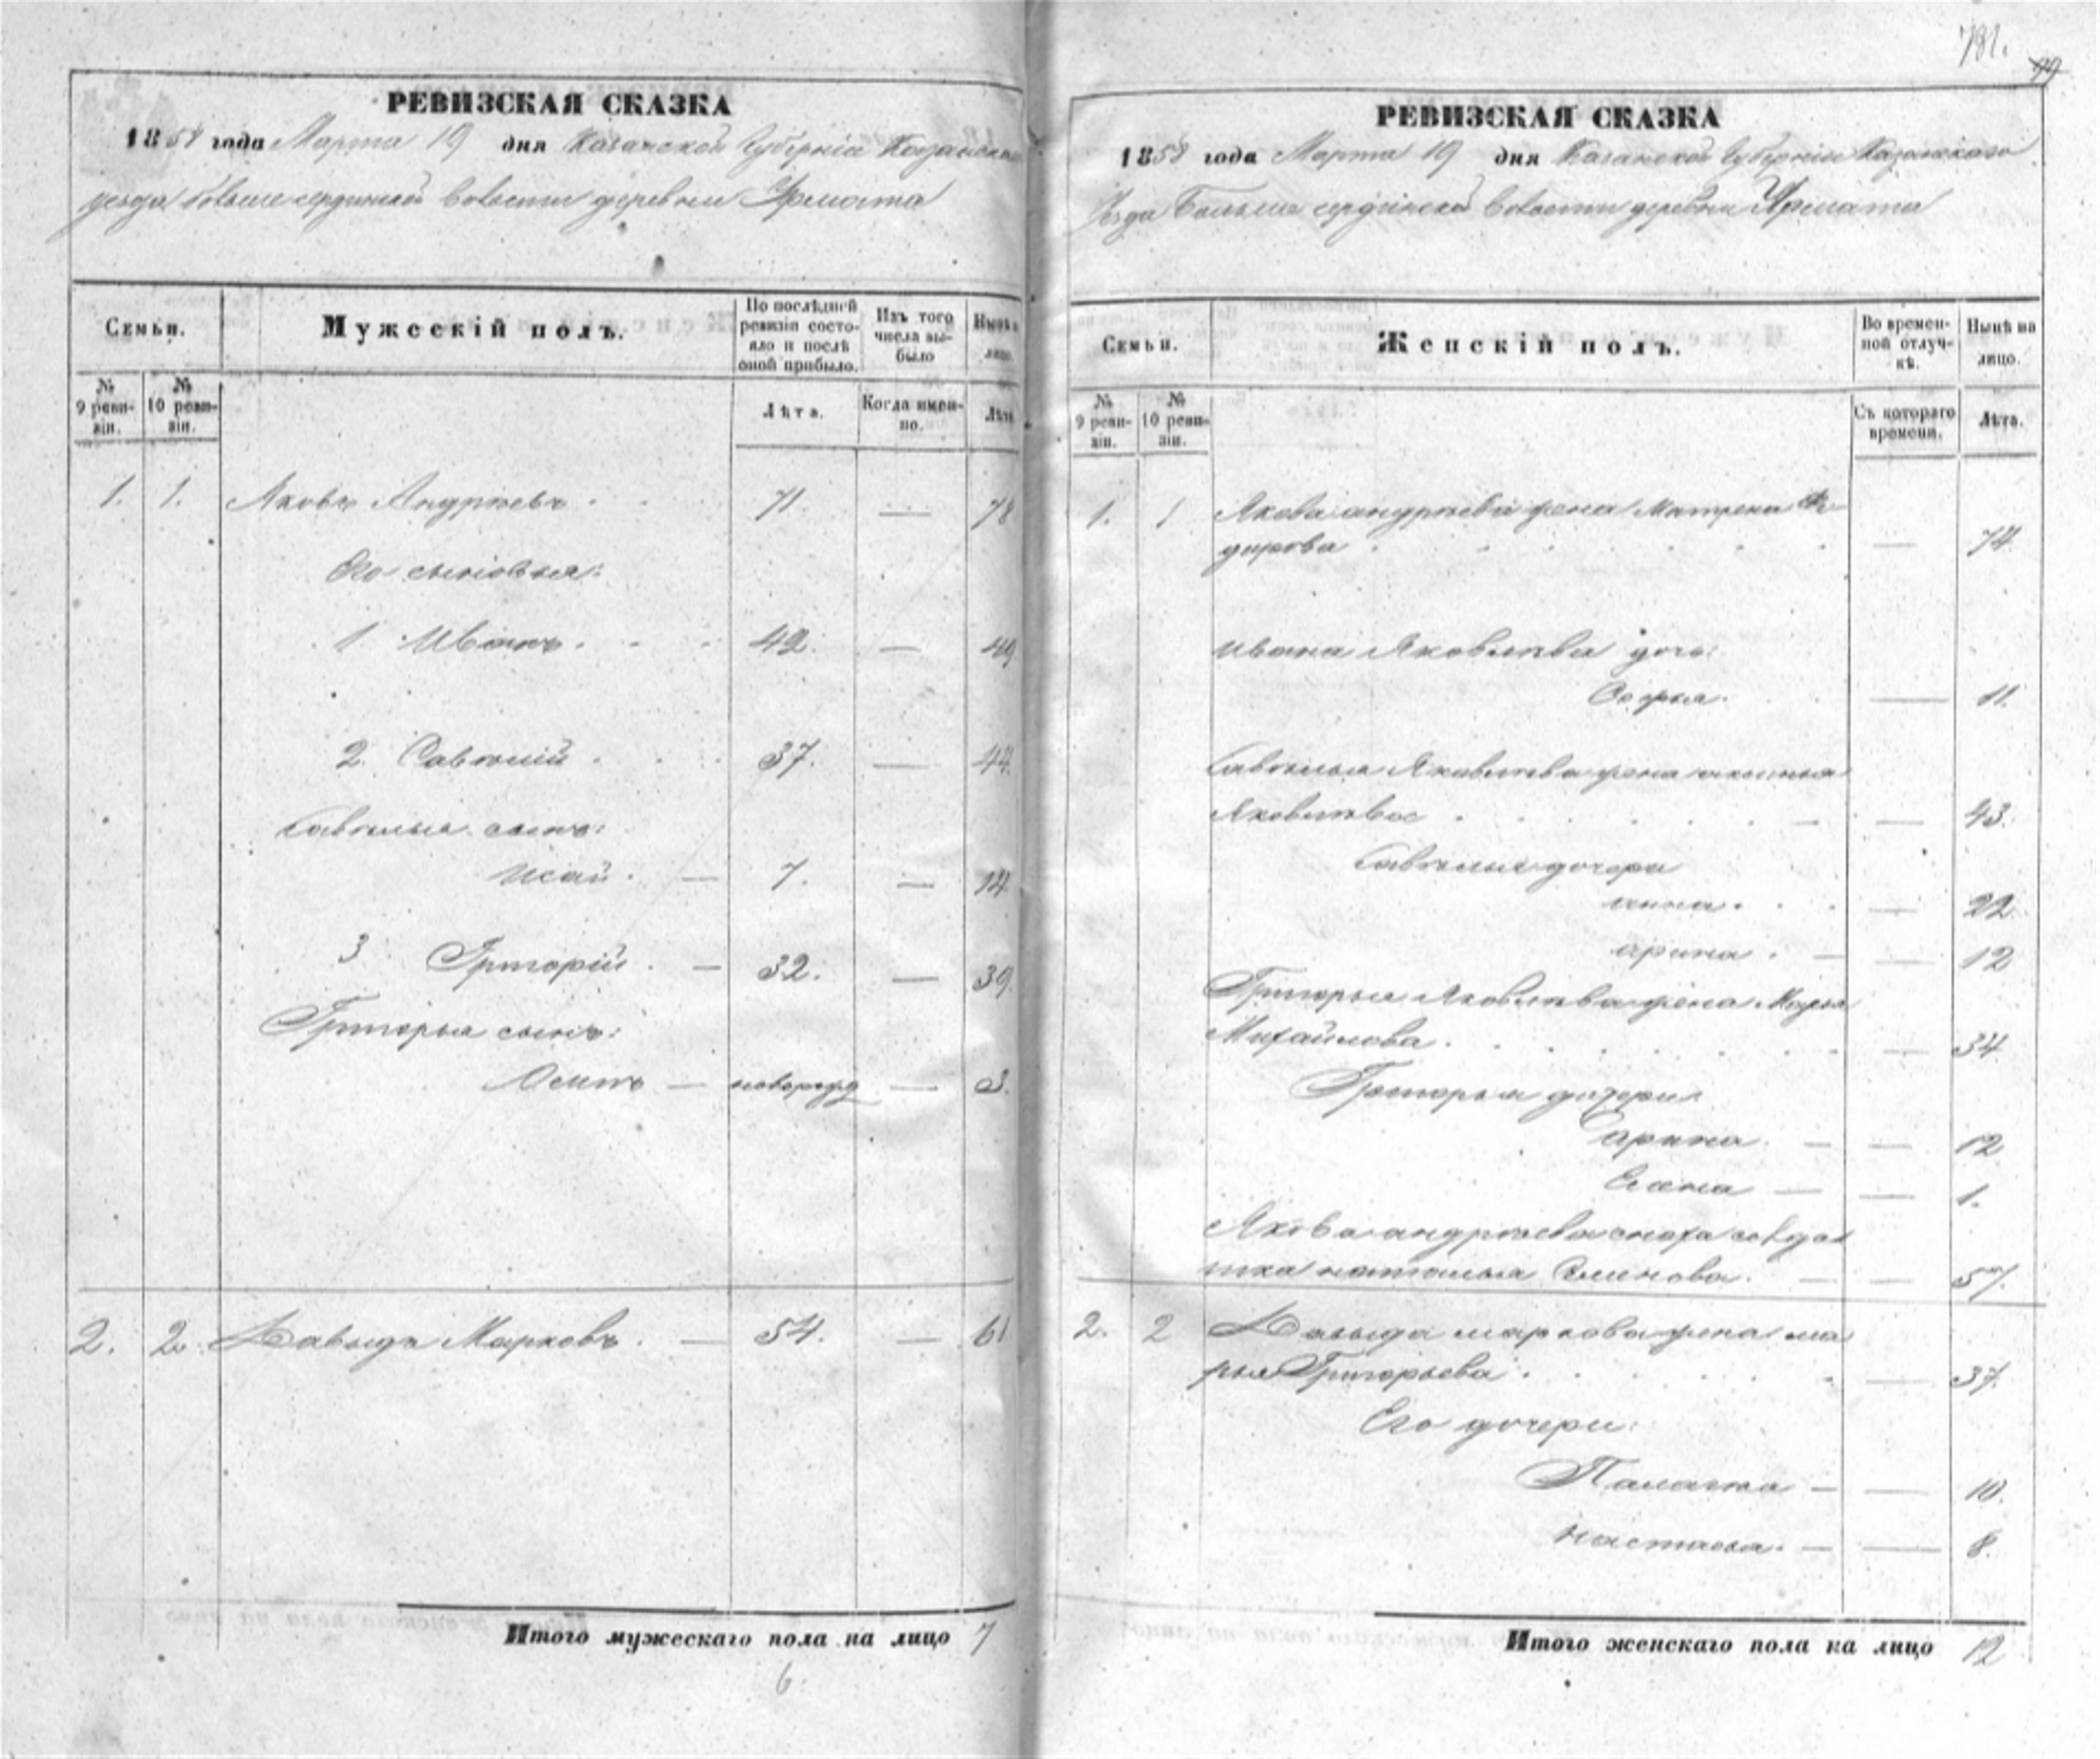 791.
99
РЕВИЗСКАЯ СКАЗКА
1858 года Марта 19 дня Казанской Губернiи Казанскаго
уезда больше сердинской волости деревни Ярмата
Семьи.
Мужескiй полъ.
По послѣдней ревизiи состо-
яло и послѣ
оной прибыло.
Изъ того
числа вы-
было
Нынѣ на
лицо.
№
9 реви-
зiи.
№
10 реви-
зiи.
Лѣта.
Когда имен-
но.
Лѣта
1. 1. Яковъ Андрѣевъ 71 — 78
Его сыновья:
1 Иванъ 42. — 49
2. Савѣлiй 37. — 44.
Савѣлья сынъ:
Исай 7. — 14.
3 Григорiй — 32. — 39.
Григорья сынъ:
Осипъ — новорожд — 3.
2. 2. Давыдъ Марковъ — 54. — 61
Итого мужескаго пола на лицо 7
6.
РЕВИЗСКАЯ СКАЗКА
1858 года Марта 19 дня Казанской Губернiи Казанскаго
Уезда Больше сердинской волости деревни Ярмата
Семьи.
Женскiй полъ.
Во времен-
ной отлуч-
кѣ.
Нынѣ на
лицо.
№
9 реви-
зiи.
№
10 реви-
зiи.
Съ котораго
времени.
Лѣта.
1. 1 Якова андрѣева жена Матрена Фе-
дорова — 74.
Ивана Яковлева дочь:
Софья — 11.
Савѣлья Яковлева жена
Яковлева — 43.
Савѣлья дочери
анна — 22.
арина — 12
Григорья Яковлева жена Марья
Михайлова — 34.
Григорья дочери
арина — 12
Елена — 1.
Якова андрѣева сноха солдат
ка наталья Семенова — 57.
2. 2 Давыда маркова жена ма
рья Григорьева — 37.
Его дочери:
Палагѣя — 10.
настасья — 8.
Итого женскаго пола на лицо 12